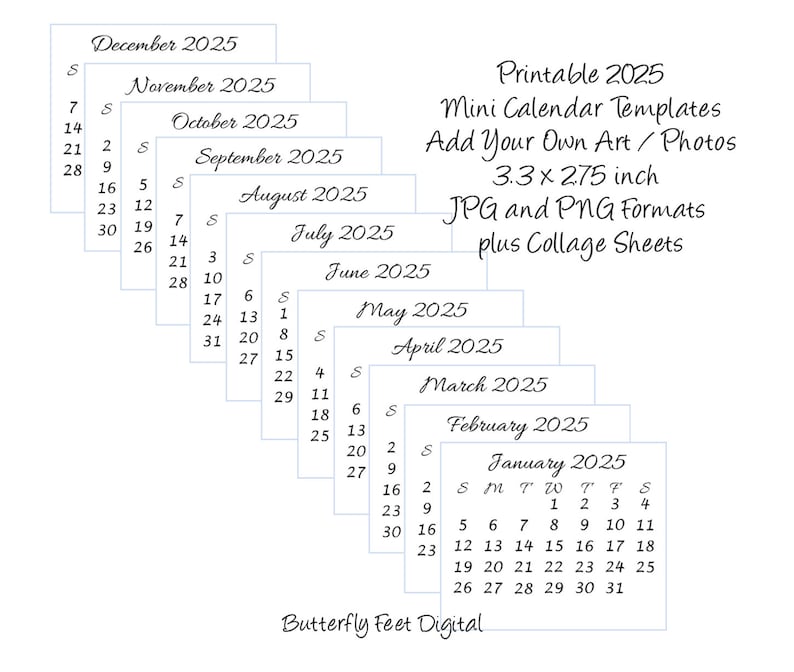 December 2025
S
7
14
21
28
November 2025
S
2
9
16
23
30
October 2025
S
5
12
19
26
September 2025
S
7
14
21
28
August 2025
S
3
10
17
24
31
July 2025
S
6
13
20
27
June 2025
S
1
8
15
22
29
May 2025
S
4
11
18
25
April 2025
S
6
13
20
27
March 2025
S
2
9
16
23
30
February 2025
S
2
9
16
23
January 2025
S M T W T F S
1 2 3 4
5 6 7 8 9 10 11
12 13 14 15 16 17 18
19 20 21 22 23 24 25
26 27 28 29 30 31
Printable 2025
Mini Calendar Templates
Add Your Own Art / Photos
3.3 x 2.75 inch
JPG and PNG Formats
plus Collage Sheets
Butterfly Feet Digital